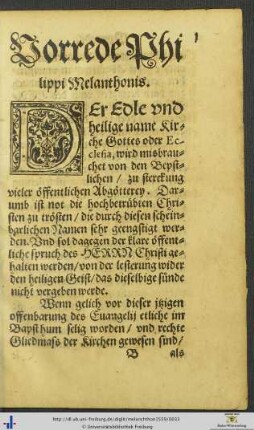 Vorrede Phi
lippi Melanthonis.
DEr Edle vnd
heilige name Kir-
che Gottes oder Ec-
clesia, wird misbrau-
chet von den Bepst-
lichen / zu sterckung
vieler öffentlichen Abgötterey. Dar-
umb ist not die hochbetrübten Chri-
sten zu trösten / die durch diesen schein-
barlichen Namen sehr geengstigt wer-
den. Vnd sol dagegen der klare öffent-
liche spruch des HERRN Christi ge-
halten werden / von der lesterung wider
den heiligen Geist / das dieselbige sünde
nicht vergeben werde.
Wenn gelich vor dieser itzigen
offenbarung des Euangelij etliche im
Bapsthum selig worden / vnd rechte
Gliedmass der Kirchen gewesen sind /
B als
© Universitätsbibliothek Freiburg